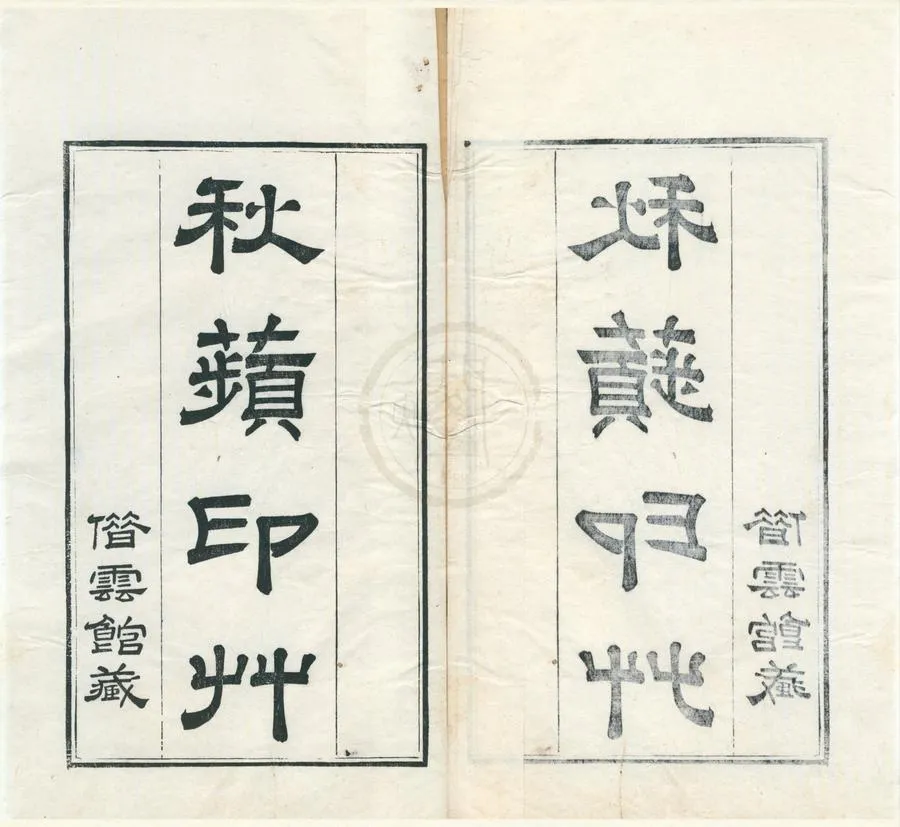 秋蘋印艸
借雲館藏